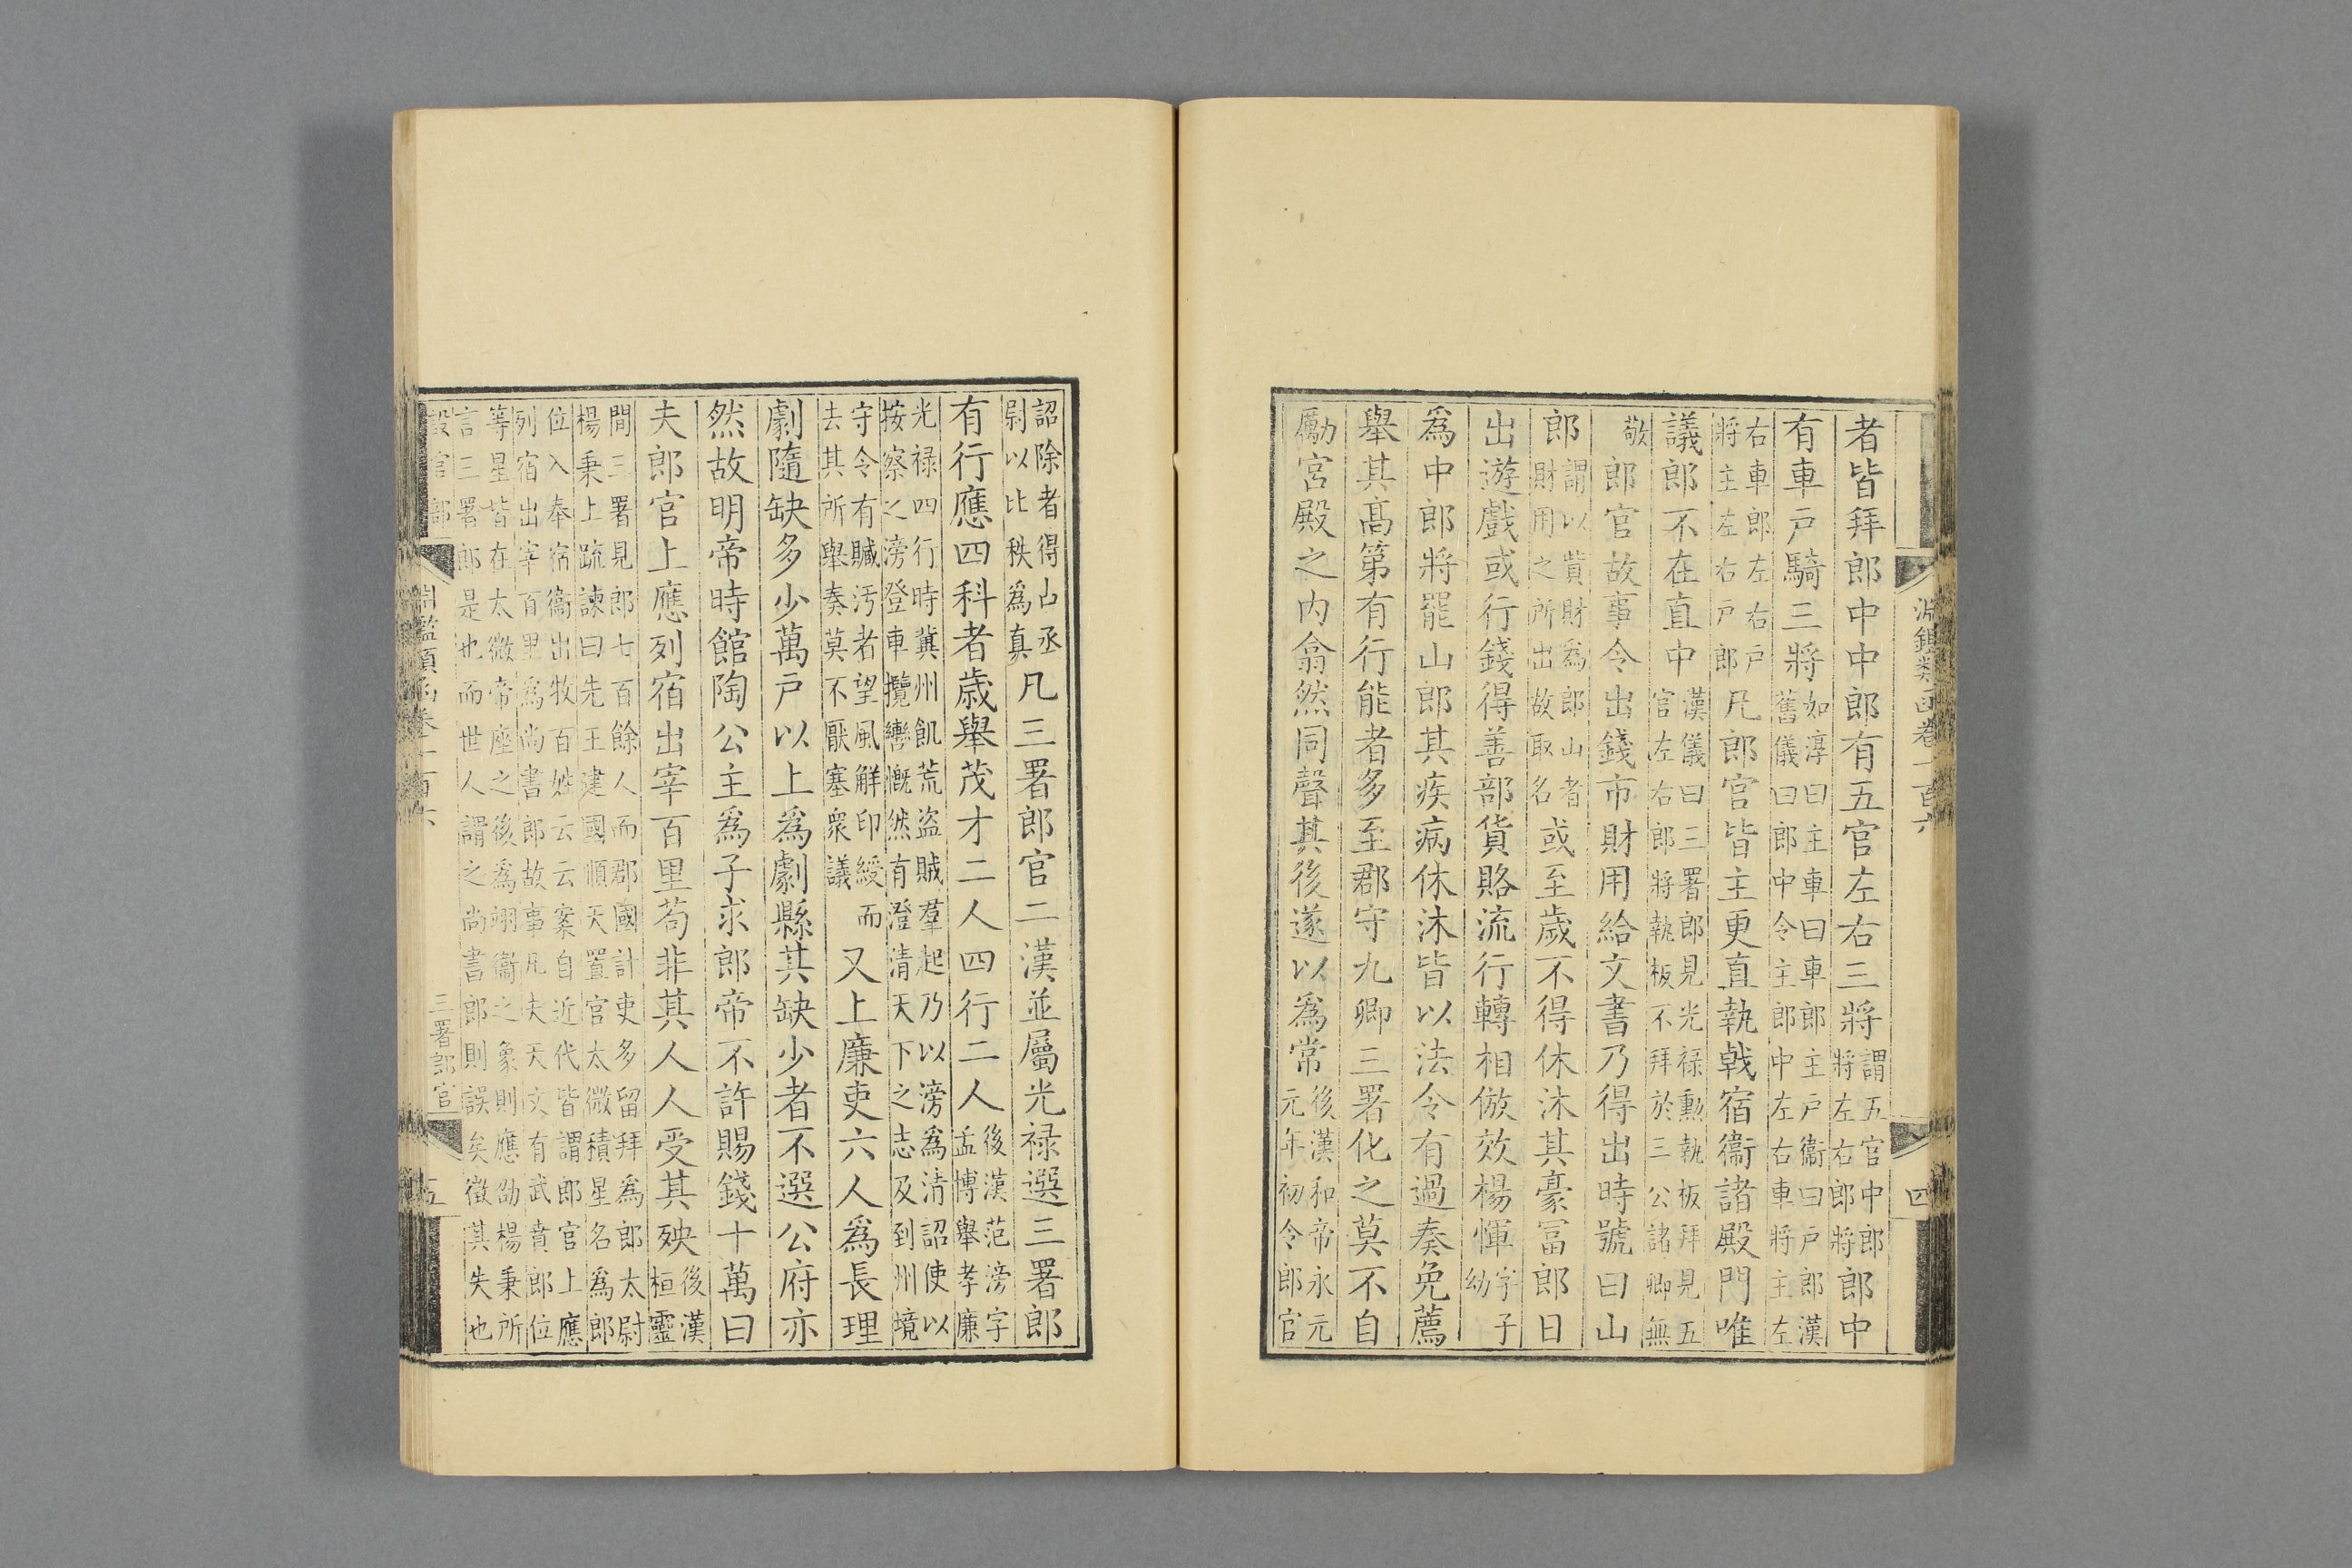 淵鑑類函卷一百六 四
者皆拜郎中中郎有五官左右三將謂五官中郎將左右郎將郎中
有車戸騎三將如淳曰主車曰車郎主戸衞曰戸郎漢舊儀曰郎中令主郎中左右車將主左
右車郎左右戸將主左右戸郎凡郎官皆主更直執戟宿衞諸殿門唯
議郎不在直中漢儀曰三署郎見光禄勳執板拜見五官左右郎將執板不拜於三公諸卿無
敬郎官故事令出錢市財用給文書乃得出時號曰山
郎謂以貲財為郎山者財用之所出故取名或至歲不得休沐其豪冨郎日
出遊戲或行錢得善部貨賂流行轉相倣效楊惲字子幼
為中郎將罷山郎其疾病休沐皆以法令有過奏免薦
舉其高第有行能者多至郡守九卿三署化之莫不自
勵宮殿之内翕然同聲其後遂以為常後漢和帝永元元年初令郎官
詔除者得占丞尉以比秩為真凡三署郎官二漢並屬光禄選三署郎
有行應四科者歲舉茂才二人四行二人後漢范滂字孟博舉孝廉
光禄四行時冀州飢荒盗賊羣起乃以滂為清詔使以按察之滂登車攬轡慨然有澄清天下之志及到州境
守令有贓汚者望風解印綬而去其所舉奏莫不厭塞衆議又上廉吏六人為長理
劇隨缺多少萬戸以上為劇縣其缺少者不選公府亦
然故明帝時館陶公主為子求郎帝不許賜錢十萬曰
夫郎官上應列宿出宰百里苟非其人人受其殃後漢桓靈
間三署見郎七百餘人而郡國計吏多留拜為郎太尉楊秉上疏諫曰先王建國順天置官太微積星名為郎
位入奉宿衞出牧百姓云云案自近代皆謂郎官上應列宿出宰百里為尚書郎故事凡夫天文有武賁郎位
等星皆在太微帝座之後為翊衞之象則應劭楊秉所言三署郎是也而世人謂之尚書郎則誤矣徴其失也
設官部 淵鑑類函卷一百六 三署郎官 五